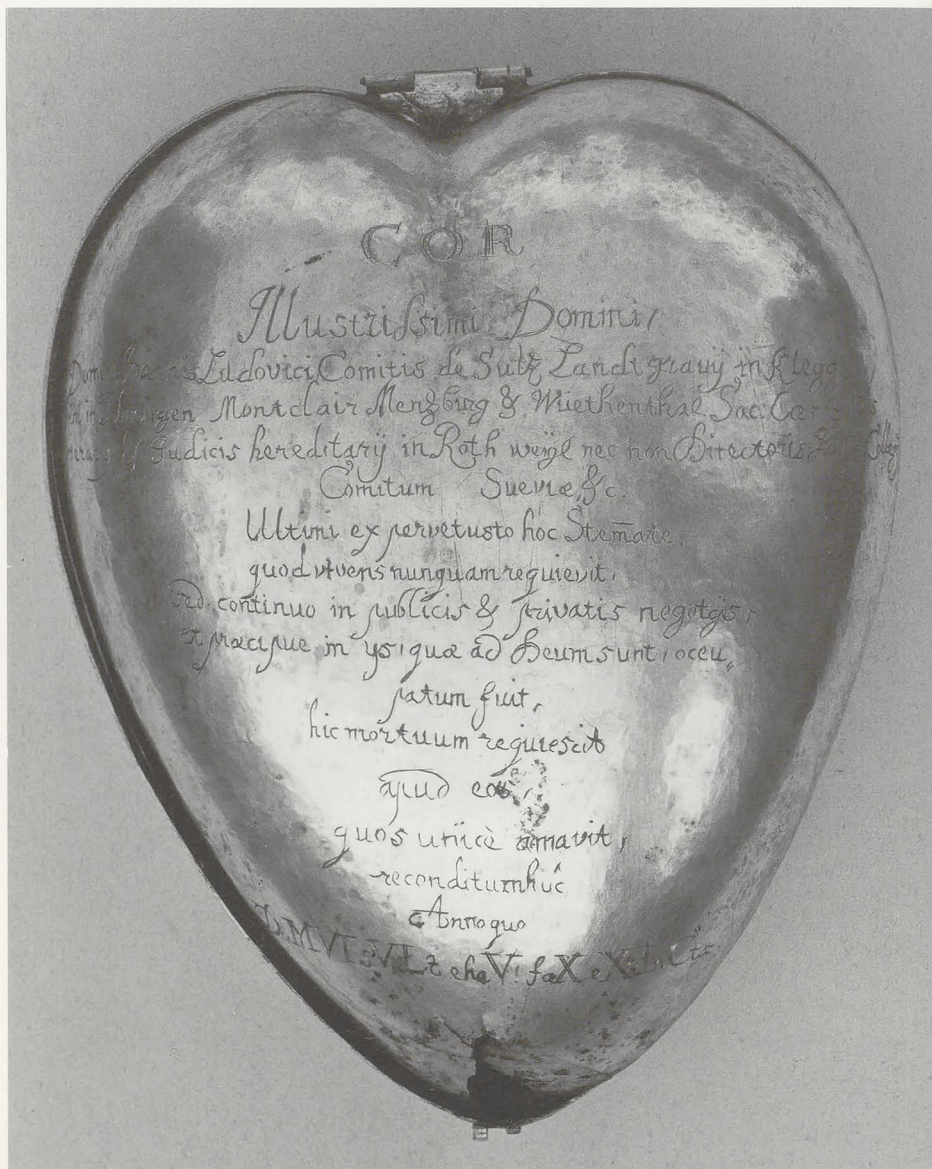 COR
Illustrissimi Domini,
Ludovici Comitis de Sultz Landtgravij in Kleggo
in Thiengen Montclair Mentzburg & Wuethenthal Sac: Cæs
Judicis hereditarij in Rothweÿl nec non Directoris Collegij
Comitum Sueviæ, &c.
Ultimi ex pervetusto hoc Stem̄ate,
quod vivens nunquam requievit,
sed continuo in publicis & privatis negotijs,
et præcipue in ys, quæ ad Deum sunt, occu„
patum fuit,
hic mortuum requiescit
apud eos,
quos unicè amavit,
reconditum huc
Anno quo
DoMVs SVLz eheV! fæX eXtInCta.